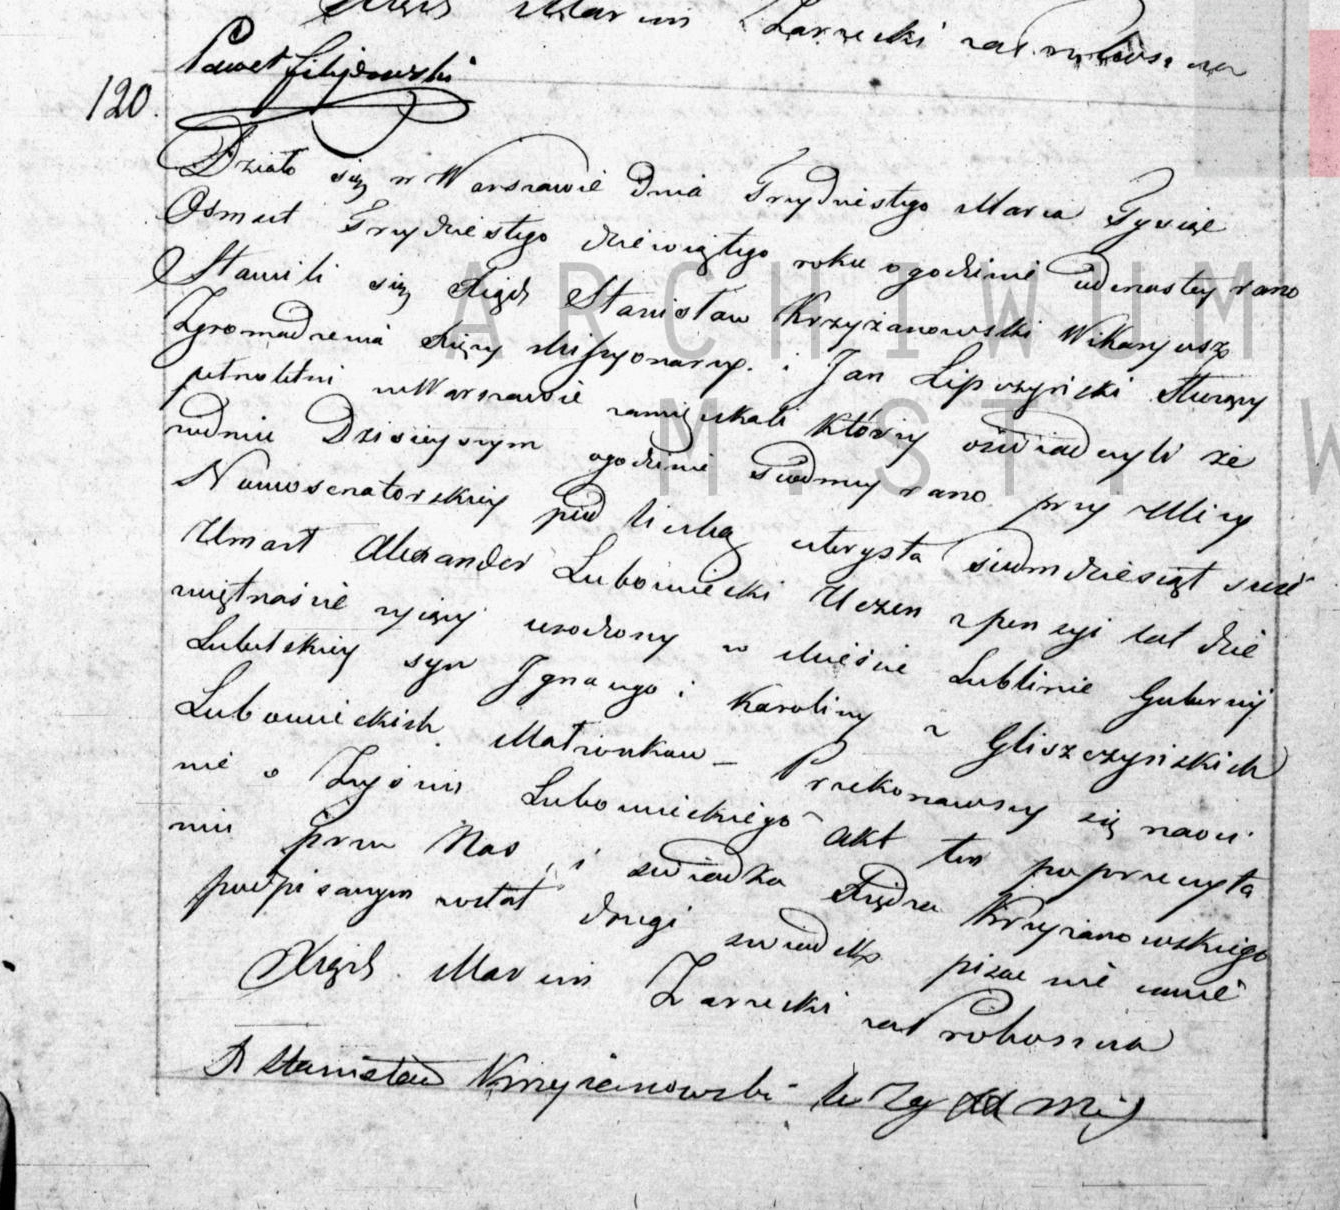 Xiądz Marcin Zarzecki za Proboszcza
Paweł Filipowski
120.
Działo się w Warszawie dnia Trzydziestego Marca Tysiąc
Osmset Trzydziestego dziewiątego roku o godzinie iedenastey rano
Stawili się Xiądz Stanisław Krzyżanowski Wikaryusz
Zgromadzenia Xięży Missyonarzy. i Jan Lipczyński Służący
pełnoletni w Warszawie zamieszkali którzy oświadczyli że
w dniu Dzisieyszym o godzinie siódmey rano przy Ulicy
Nowosenatorskiey pod liczbą czterysta siedmdziesiąt sześć
Umarł Alexander Lubowiecki Uczen z pensyi lat dzie
więtnaście maiący urodzony w Mieście Lublinie Gubernij
Lubelskiey syn Ignacego i Karoliny z Gliszczyńskich
Lubowieckich Małżonkow – Przekonawszy się naocz
nie o Zejściu Lubowieckiego akt ten po przeczyta
niu przez Nas i świadka Xiędza Krzyżanowskiego
podpisanym został drugi świadek pisać nie umie
Xiądz Marcin Zarzecki za Proboszcza
X Stanisław Krzyżanowski
ARCHIWUM
M. ST. W